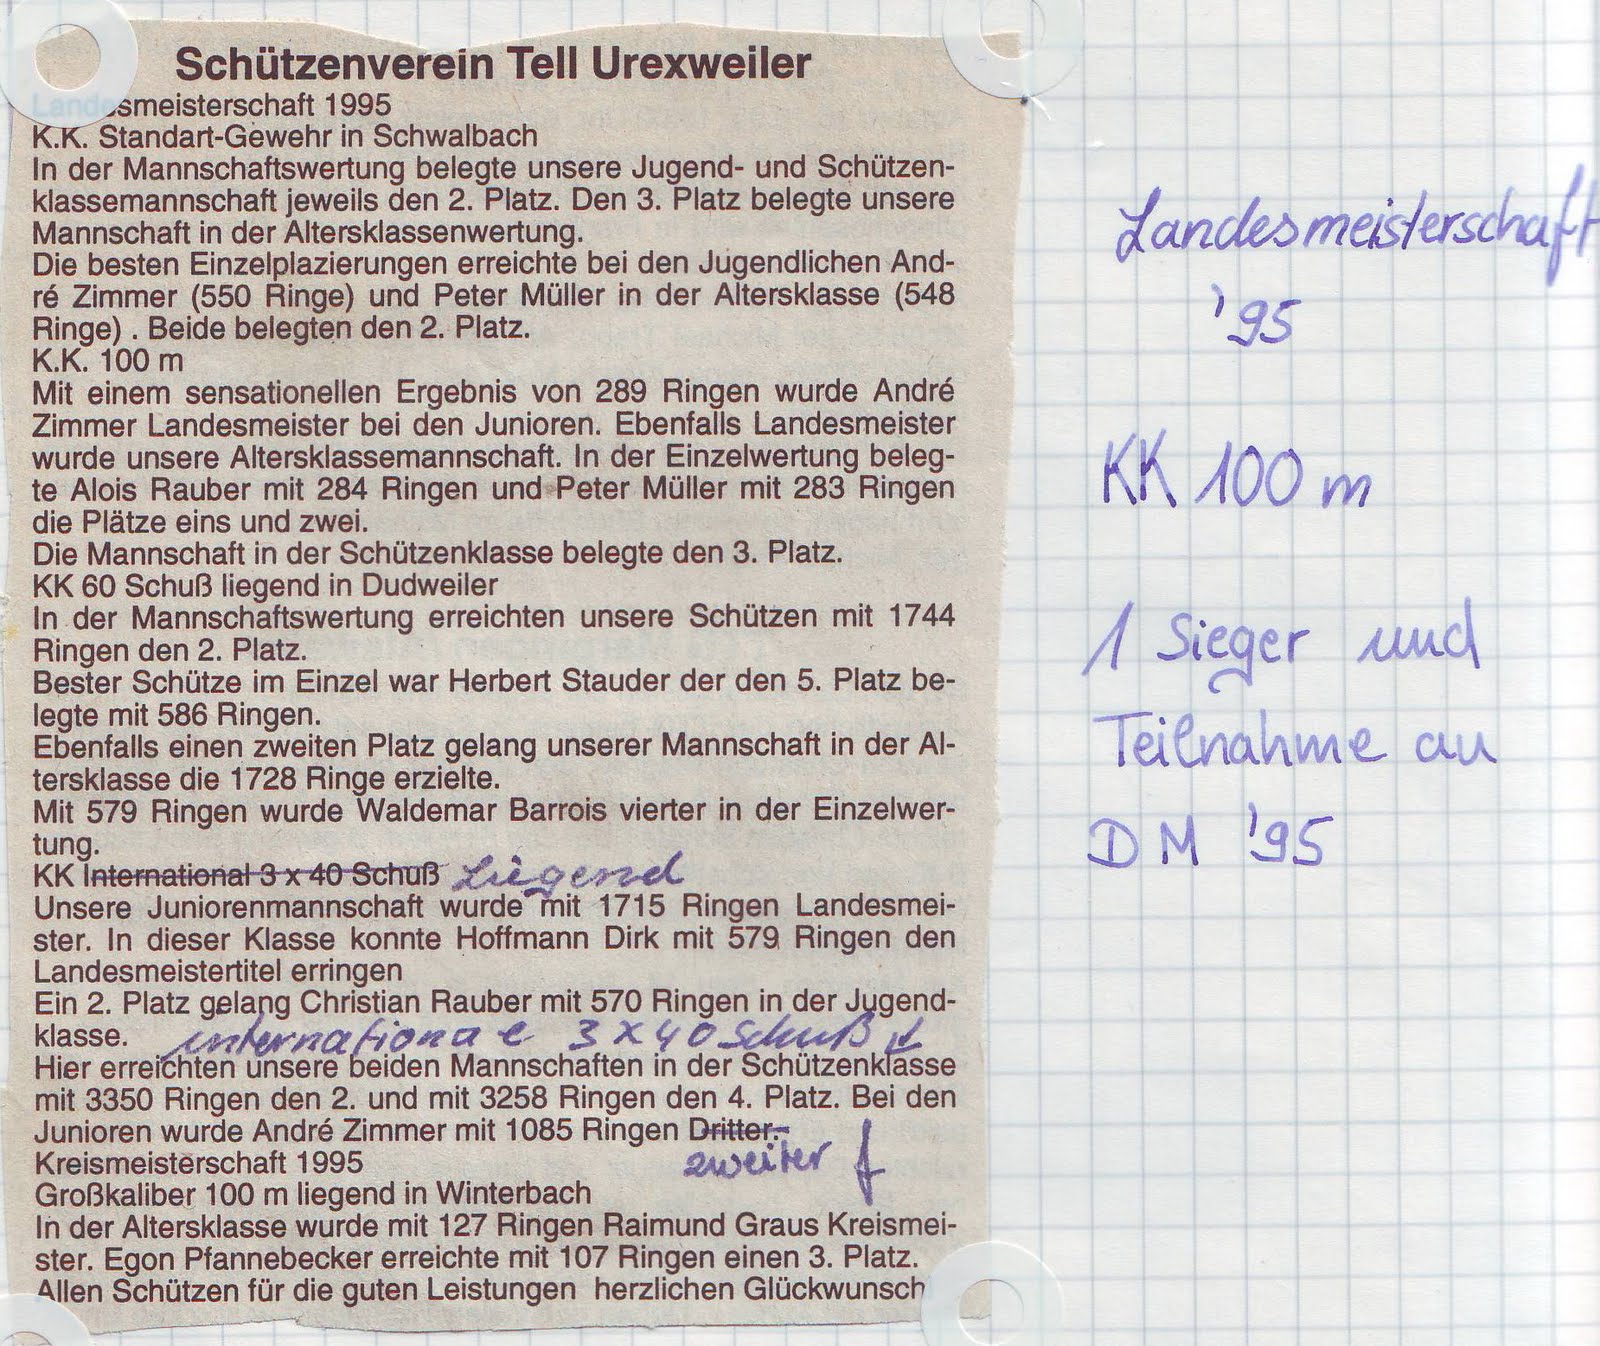 Schützenverein Tell Urexweiler
Landesmeisterschaft 1995
K.K. Standart-Gewehr in Schwalbach
In der Mannschaftswertung belegte unsere Jugend- und Schützen-
klassemannschaft jeweils den 2. Platz. Den 3. Platz belegte unsere
Mannschaft in der Altersklassenwertung.
Die besten Einzelplazierungen erreichte bei den Jugendlichen And-
ré Zimmer (550 Ringe) und Peter Müller in der Altersklasse (548
Ringe) . Beide belegten den 2. Platz.
K.K. 100 m
Mit einem sensationellen Ergebnis von 289 Ringen wurde André
Zimmer Landesmeister bei den Junioren. Ebenfalls Landesmeister
wurde unsere Altersklassemannschaft. In der Einzelwertung beleg-
te Alois Rauber mit 284 Ringen und Peter Müller mit 283 Ringen
die Plätze eins und zwei.
Die Mannschaft in der Schützenklasse belegte den 3. Platz.
KK 60 Schuß liegend in Dudweiler
In der Mannschaftswertung erreichten unsere Schützen mit 1744
Ringen den 2. Platz.
Bester Schütze im Einzel war Herbert Stauder der den 5. Platz be-
legte mit 586 Ringen.
Ebenfalls einen zweiten Platz gelang unserer Mannschaft in der Al-
tersklasse die 1728 Ringe erzielte.
Mit 579 Ringen wurde Waldemar Barrois vierter in der Einzelwer-
tung.
KK International 3 x 40 Schuß Liegend
Unsere Juniorenmannschaft wurde mit 1715 Ringen Landesmei-
ster. In dieser Klasse konnte Hoffmann Dirk mit 579 Ringen den
Landesmeistertitel erringen
Ein 2. Platz gelang Christian Rauber mit 570 Ringen in der Jugend-
klasse. international 3 x 40 Schuß ↓
Hier erreichten unsere beiden Mannschaften in der Schützenklasse
mit 3350 Ringen den 2. und mit 3258 Ringen den 4. Platz. Bei den
Junioren wurde André Zimmer mit 1085 Ringen Dritter.
zweiter
Kreismeisterschaft 1995
Großkaliber 100 m liegend in Winterbach
In der Altersklasse wurde mit 127 Ringen Raimund Graus Kreismei-
ster. Egon Pfannebecker erreichte mit 107 Ringen einen 3. Platz.
Allen Schützen für die guten Leistungen herzlichen Glückwunsch
Landesmeisterschaft
'95
KK 100 m
1 Sieger und
Teilnahme an
DM '95